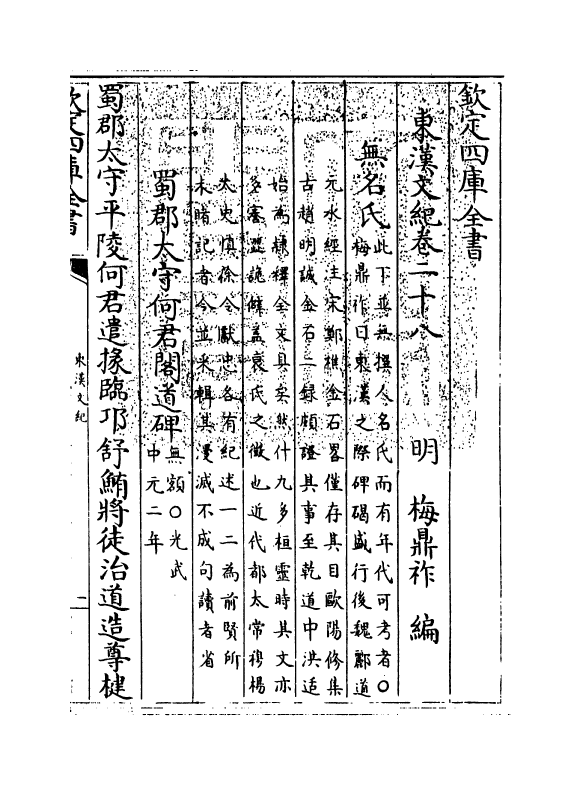 欽定四庫全書
東漢文紀卷二十八　明　梅鼎祚　編
無名氏
此下並無撰人名氏而有年代可考者○
梅鼎祚曰東漢之際碑碣盛行後魏酈道
元水經注宋鄭樵金石畧僅存其目歐陽修集
古趙明誠金石二録頗證其事至乾道中洪适
始為隸釋全文具矣然什九多桓靈時其文亦
多蹇澀詭僻蓋衰氏之徵也近代都太常穆楊
太史慎徐令獻忠各有紀述一二為前賢所
未睹記者今並采輯其漫滅不成句讀者省
蜀郡太守何君閣道碑
無額○光武
中元二年
蜀郡太守平陵何君遣掾臨邛舒鮪將徒治道造尊楗
欽定四庫全書
東漢文紀